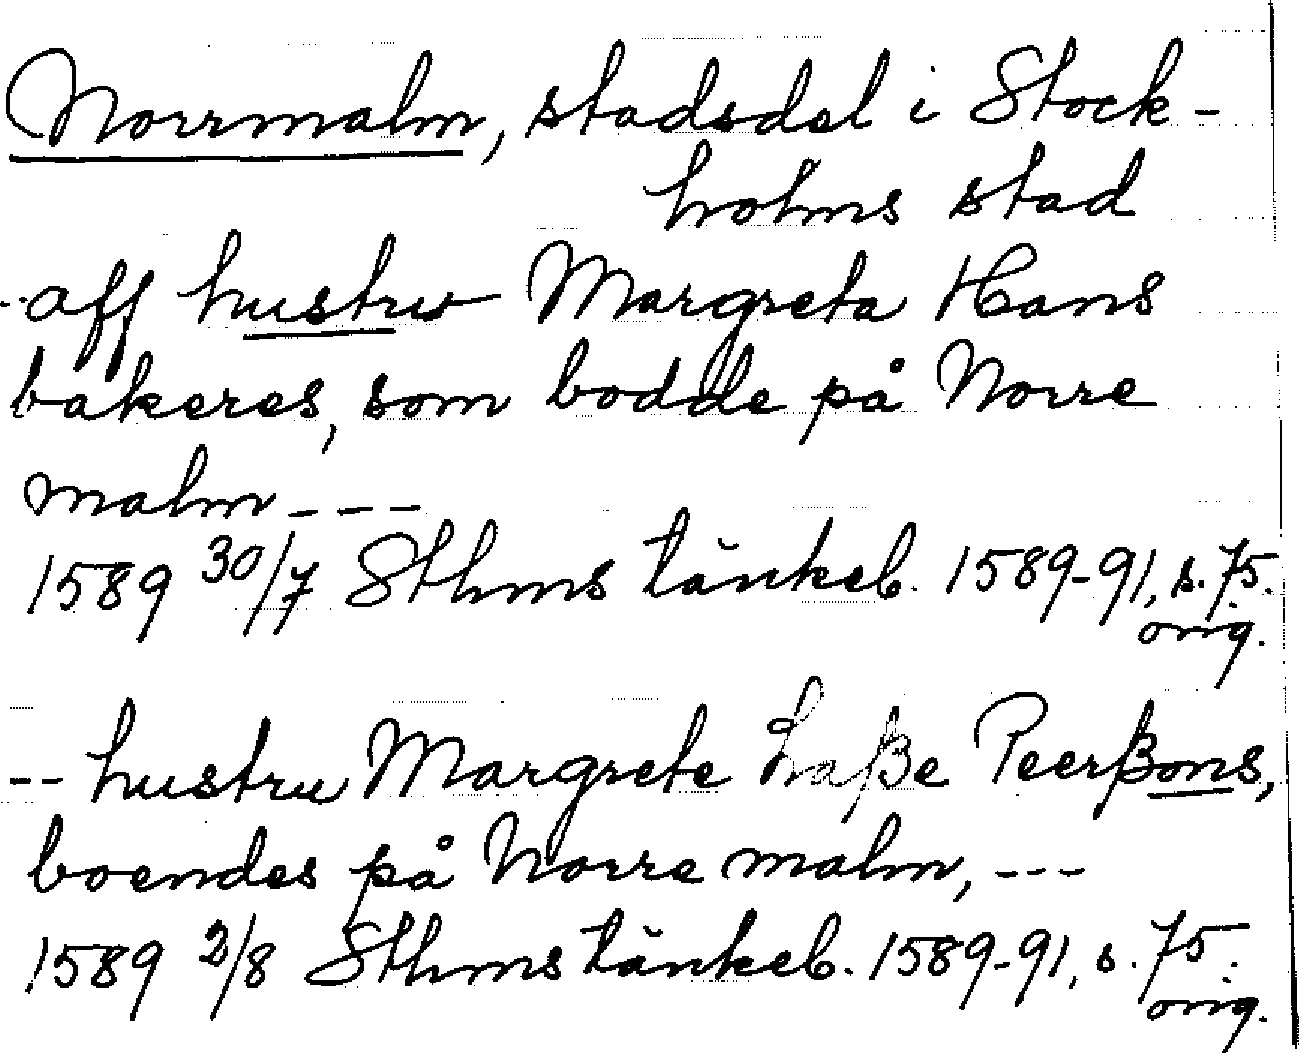 Norrmalm, stadsdel i Stock-
holms stad
-- aff hustrw Margreta Hans
bakeres, som bodde på Norre
malm ---
1589 30/7 Sthms tänkeb. 1589-91, s. 75.
orig.
-- hustru Margrete Laße Peerßons,
boendes på Norre malm, ---
1589 2/8 Sthms tänkeb. 1589-91, s. 75.
orig.